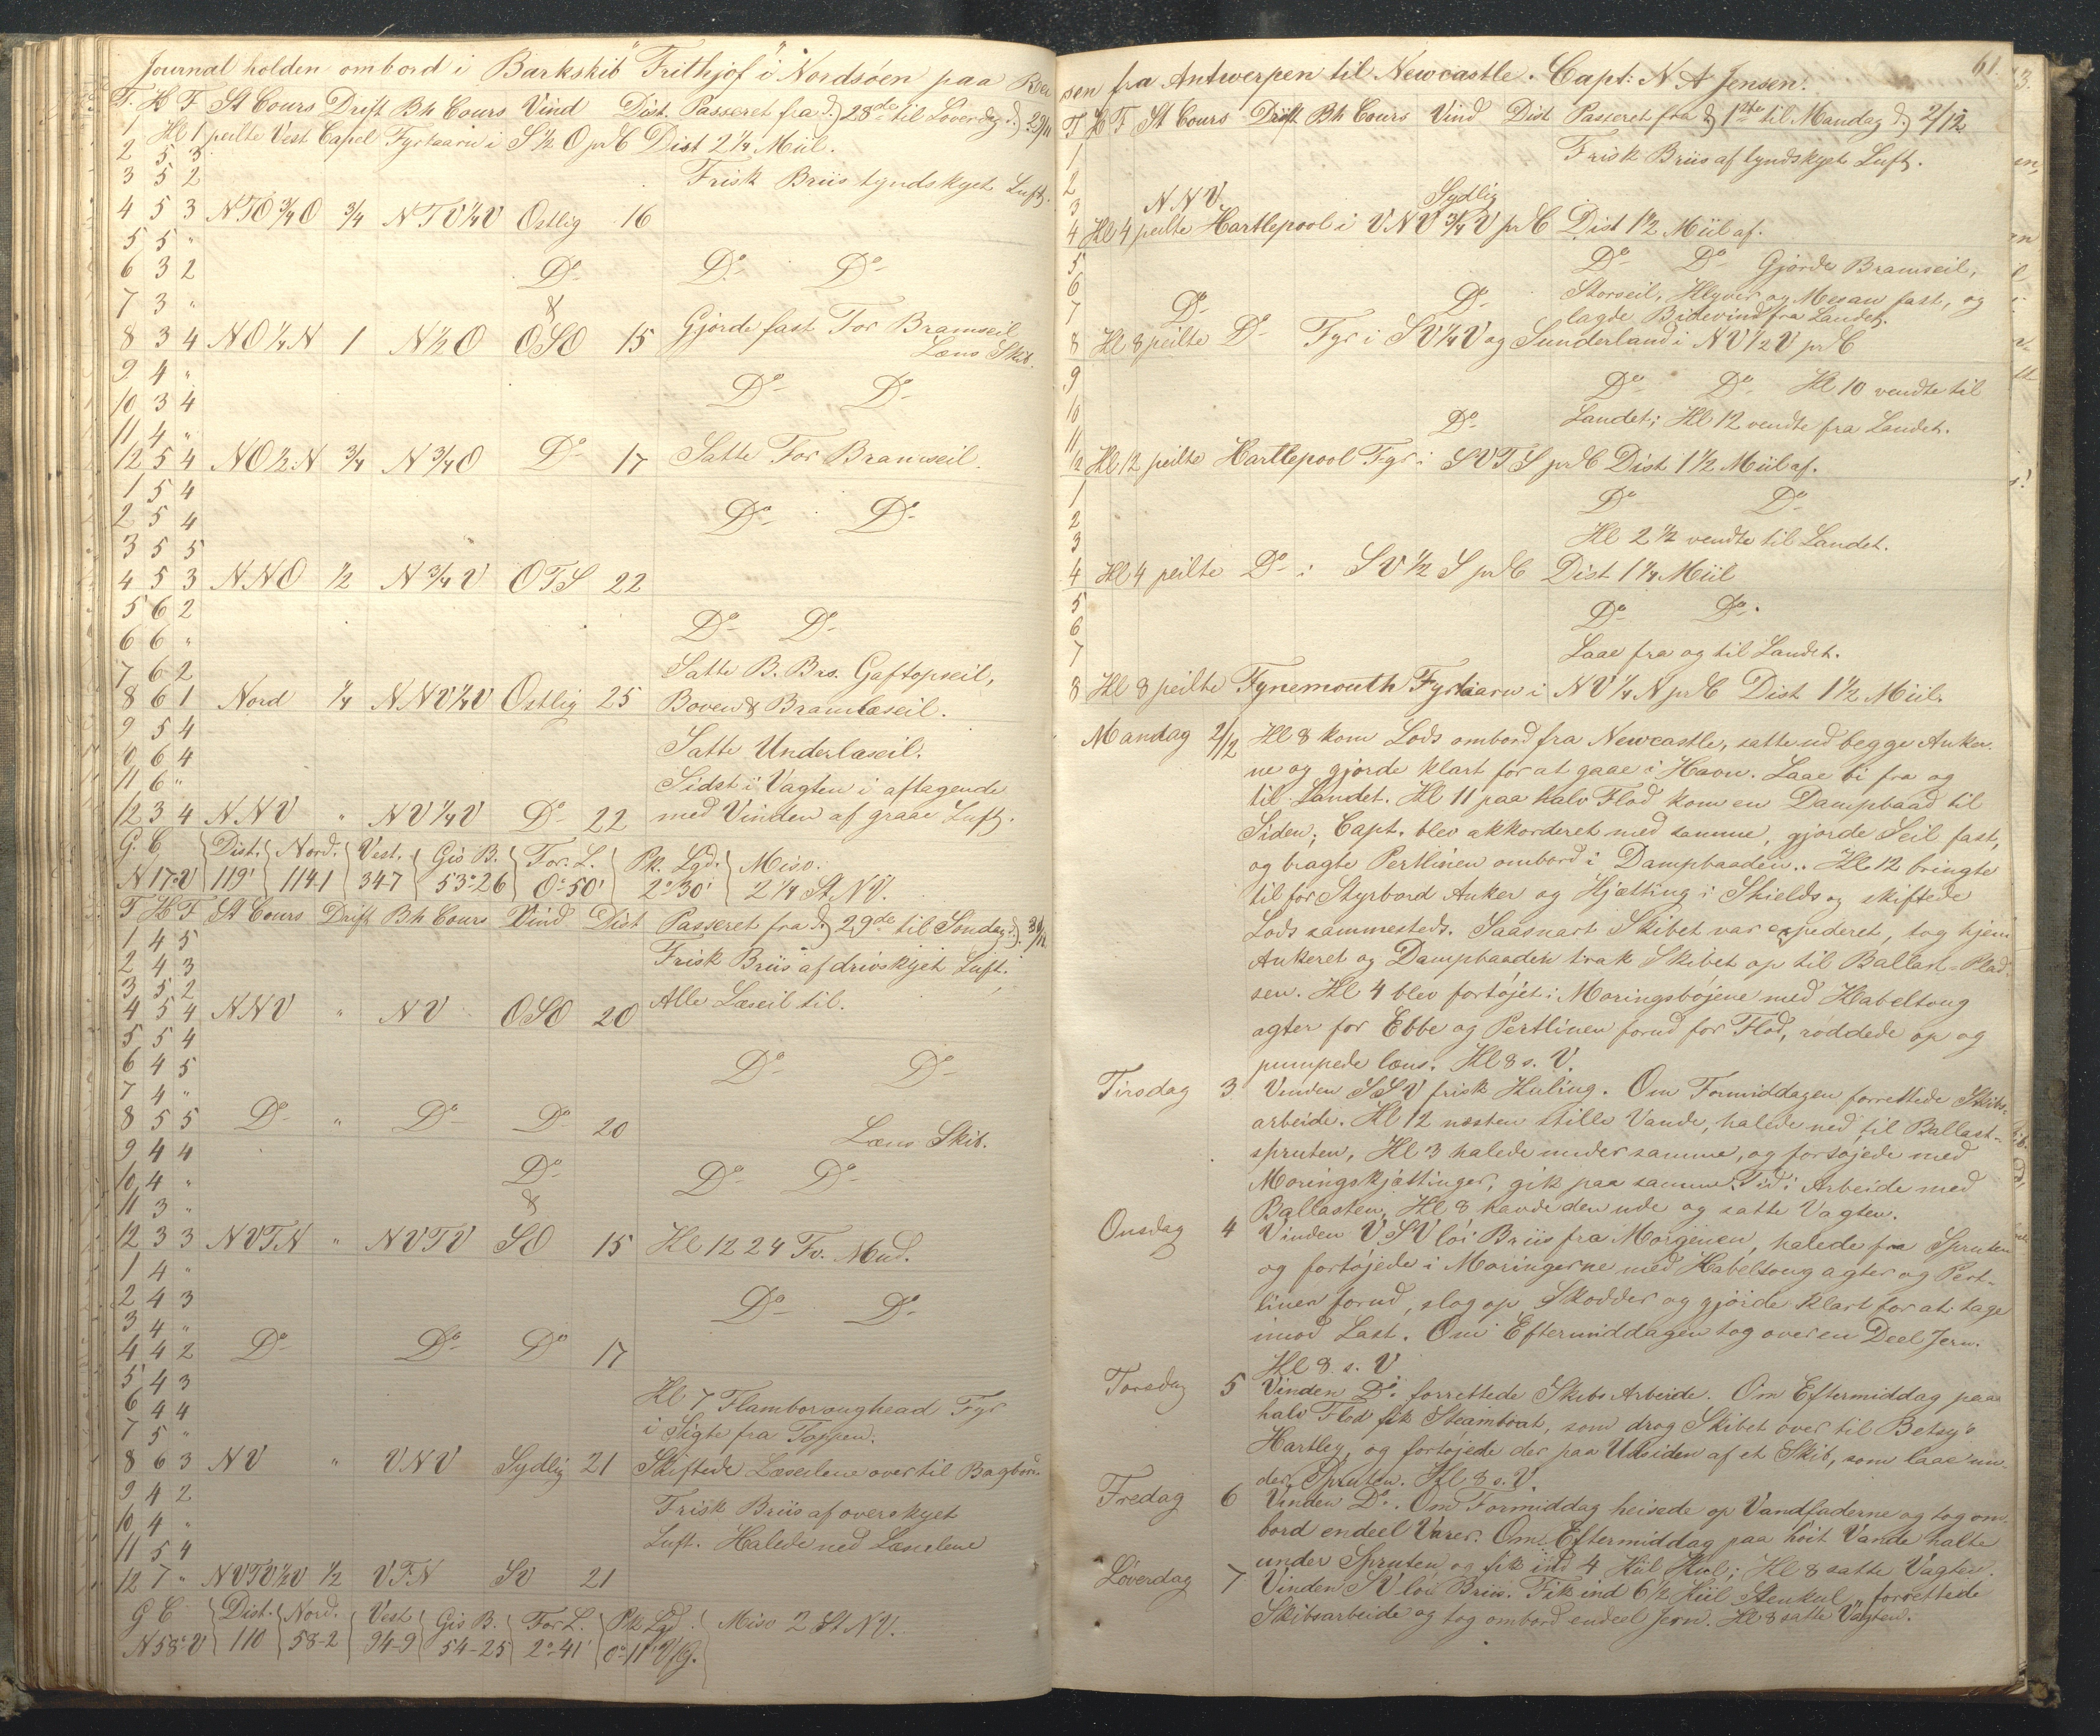 Journal holden ombord i Barkskib "Frithjof" i Nordsöen paa Rei
T. H F St Cours Drift Bb Cours Vind Dist. Passeret fra d) 28de til Löverdag d) 29/11
1 Kl 1 peilte Vest Capel Fyrtaarn i S ½ O pr C Dist 2 ¼ Miil.
2 5 3
3 5 2 Frisk Briis tyndskyet Luft.
4 5 3 NTO ¾ O ¾ NTV ¼ V Ostlig 16
5 5 "
6 3 2 Do Do Do
7 3 " &
8 3 4 NO ¼ N 1 N ½ O OSO 15 Gjorde fast For Bramseil
Læns Skib.
9 4 "
10 3 4 Do Do
11 4 "
12 5 4 NO ½ N ¾ N ¾ O Do 17 Satte For Bramseil.
1 5 4
2 5 4 Do Do
3 5 5
4 5 3 NNO ½ N ¾ V OTS 22
5 6 2
6 6 " Do Do
7 6 2 Satte B. Brs. Gaftopseil,
8 6 1 Nord ¼ NNV ¼ V Ostlig 25 Boven & Bramlæseil.
9 5 4
10 6 4 Satte Underlæseil.
11 6 " Sidst i Vagten i aftagende
12 3 4 NNV " NV ¼ V Do 22 med Vinden af graae Luft.
G. C Dist. Nord. Vest. Gis B. For. L. Pk. Lgd. Misv.
N 17° V 119' 114-1 34-7 53°-26 0°-50' 2°-30' 2 ¼ St. NV.
T H F St Cours Drift Bb Cours Vind Dist Passeret fra d) 29de til Söndag d) 30/11
1 4 5
2 4 3 Frisk Briis af drivskyet Luft.
3 5 2
4 5 4 NNV " NV OSO 20 Alle Læseil til.
5 5 4
6 4 5 Do Do
7 4 "
8 5 5 Do " Do Do 20
Læns Skib.
9 4 4
10 4 " Do Do Do
11 3 " &
12 3 3 NVTN " NVTV SO 15 Kl 12 24 Fv. Mud.
1 4 "
2 4 3 Do Do
3 4 "
4 4 2 Do Do Do 17
5 4 3
6 4 4 Kl 7 Flamboroughead Fyr
7 5 " i Sigte fra Toppen.
8 6 3 NV " VNV Sydlig 21 Skiftede Læseilene over til Bagbord
9 4 2
10 4 " Frisk Briis af overskyet
11 5 4 Luft. Halede ned Læseilene
12 7 " NVTV ½ V ½ VTN SV 21
G C Dist. Nord. Vest Gis B. For L. Pk Lgd. Misv 2 St NV.
N 58° V 110 58-2 94-9 54-25 2°-41' 0°-11' V/G.
61.
sen fra Antwerpen til Newcastle. Capt: N A Jensen.
T H F St Cours Drift Bb Cours Vind Dist Passeret fra d) 1ste til Mandag d) 2/12
1 Frisk Briis af tyndskyet Luft.
2
3 NNV. Sydlig
4 Kl 4 peilte Hartlepool i VNV ¾ V pr C Dist 1 ½ Miil af.
5 Do Do Gjorde Bramseil,
6 Storseil, Klyver og Mesan fast, og
7 Do Do lagde Bidevind fra Landet.
8 Kl 8 peilte Do Fyr i SV ¼ V og Sunderland i NV ½ V pr C
9 Do Do Kl 10 vendte til
10 Do Landet; Kl 12 vendte fra Landet.
11
12 Kl 12 peilte Hartlepool Fyr i SVTS pr C Dist 1 ½ Miil af.
1 Do Do
2
3 Kl 2 ½ vendte til Landet.
4 Kl 4 peilte Do i SV ½ S pr C Dist 1 ¼ Miil
5 Do Do.
6
7 Laae fra og til Landet.
8 Kl 8 peilte Tynemouth Fyrtaarn i NV ¼ N pr C Dist 1 ½ Miil.
Mandag 2/12 Kl 8 kom Lods ombord fra Newcastle, satte ud begge Anker-
ne og gjorde klart for at gaae i Havn. Laae bi fra og
til Landet. Kl 11 paa halv Flod kom en Dampbaad til
Siden; Capt. blev akkorderet med samme, gjorde Seil fast,
og bragte Pertlinen ombord i Dampbaaden. Kl 12 bringte
til for Styrbord Anker og Kjætting i Shields og skiftede
Lods sammesteds. Saasnart Skibet var expederet, tog hjem
Ankeret og Dampbaaden trak Skibet op til Ballast-Plad-
sen. Kl 4 blev fortöjet i Moringsböjene med Kabeltoug
agter for Ebbe og Pertlinen forud for Flod, röddede op og
pumpede læns. Kl 8 s. V.
Tirsdag 3 Vinden SSV frisk Kuling. Om Formiddagen forrettede Skibs-
arbeide. Kl 12 næsten stille Vande, halede ned til Ballast-
spruten, Kl 3 halede under samme, og fortöjede med
Moringskjættinger, gik paa samme Tid i Arbeide med
Ballasten, Kl 8 havde den ude og satte Vagten.
Onsdag 4 Vinden VSV löi Briis fra Morgenen, halede fra Spruten
og fortöjede i Moringerne med Kabeltoug agter og Pert-
linen forud, slog op Skodder og gjörde klart for at tage
imod Last. Om Eftermiddagen tog over en Deel Jern.
Kl 8 s. V
Torsdag 5 Vinden Do. forrettede Skibs Arbeide. Om Eftermiddag paa
halv Flod fik Steamboat, som drog Skibet over til Betsy's
Hartley, og fortöjede der paa Udsiden af et Skib, som laae un-
der Spruten. Kl 8 s. V.
Fredag 6 Vinden Do. Om Formiddag heisede op Vandfaderne og tog om-
bord endeel Varer. Om Eftermiddag paa höit Vande halte
under Spruten og fik ind 4 Kiil Kul; Kl 8 satte Vagten.
Löverdag 7 Vinden SV löi Briis. Fik ind 6 ½ Kiil Stenkul, forrettede
Skibsarbeide og tog ombord endeel Jern. Kl 8 satte Vagten.